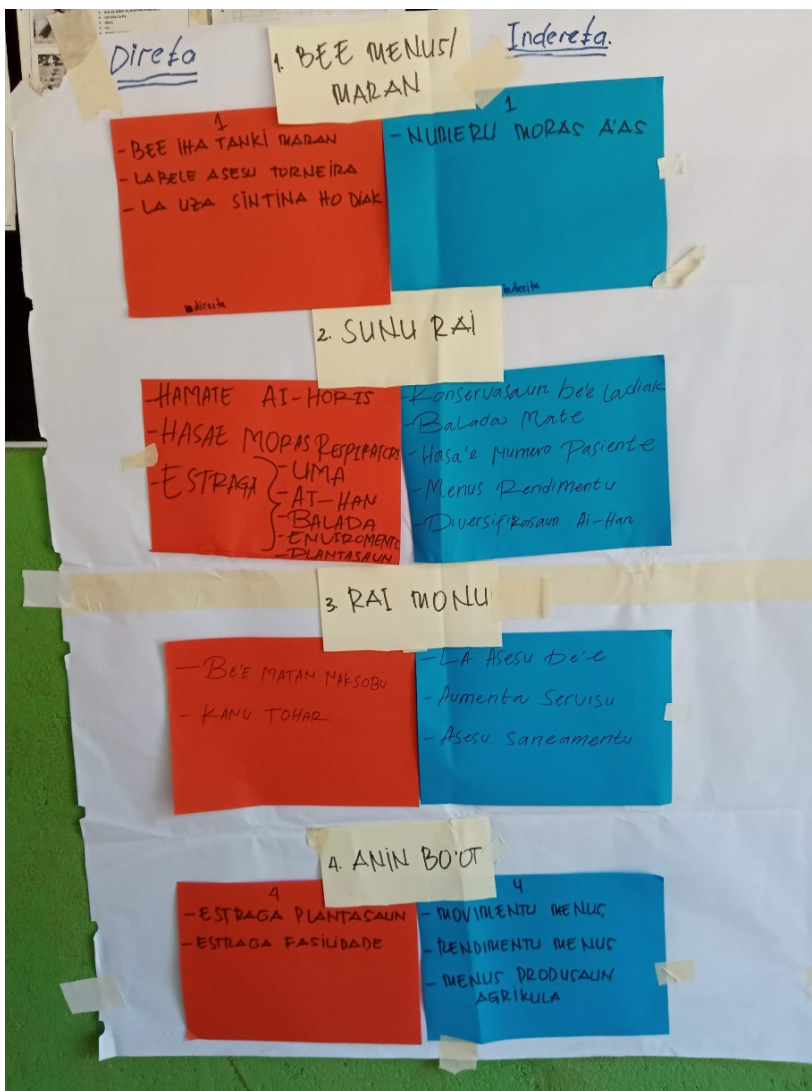 Direto
Indereta.
1. BEE MENUS/
MARAN
1
- BEE IHA TANKI MARAN
- LABELE ASESU TORNEIRA
- LA UZA SINTINA HO DIAK
direita
1
- NUMERU MORAS A'AS
indireita
2. SUNU RAI
- HAMATE AI-HORIS
- HASAE MORAS RESPIRATORI
- ESTRAGA
- UMA
- AI-HAN
- BALADA
- ENVIROMENTO
- PLANTASAUN
- Konservasaun be'e ladiak
- Balada Mate
- Hasa'e Numero Pasiente
- Menus Rendimentu
- Diversifikasaun Ai-Han
3. RAI MONU
- BE'E MATAN NAKSOBU
- KANU TOHAR
- LA Asesu be'e
- Aumenta Servisu
- Asesu Saneamentu
4. ANIN BO'OT
4
- ESTRAGA PLANTASAUN
- ESTRAGA FASILIDADE
4
- MOVIMENTU MENUS
- RENDIMENTU MENUS
- MENUS PRODUSAUN
AGRIKULA